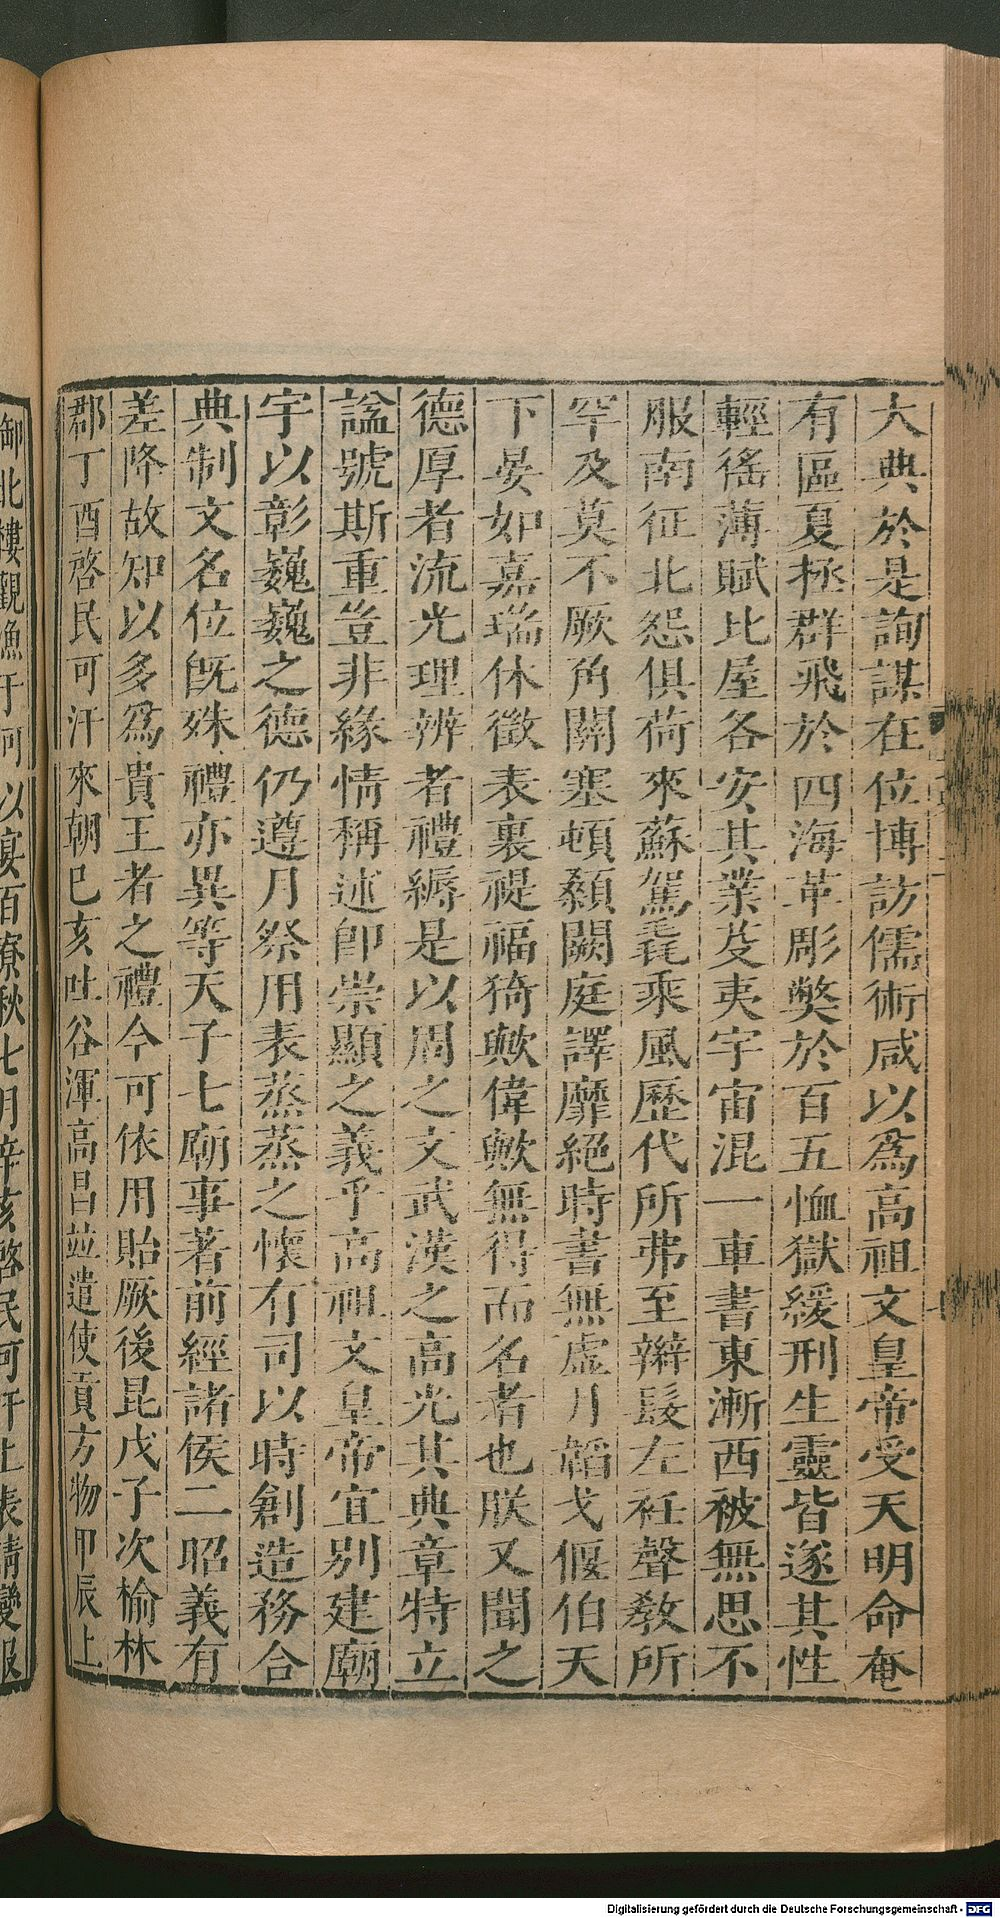 大典於是詢謀在位博訪儒術咸以為高祖文皇帝受天明命奄
有區夏拯群飛於四海革彫獘於百五恤獄緩刑生靈皆遂其性
輕徭薄賦比屋各安其業芟夷宇宙混一車書東漸西被無思不
服南征北怨俱荷來蘇駕毳乘風歷代所弗至辮髮左衽聲教所
罕及莫不厥角關塞頓顙闕庭譯靡絕時書無虛月韜戈偃伯天
下晏如嘉瑞休徵表裏禔福猗歟偉歟無得而名者也朕又聞之
德厚者流光理辨者禮縟是以周之文武漢之高光其典章特立
諡號斯重豈非緣情稱述即崇顯之義乎高祖文皇帝宜別建廟
宇以彰巍巍之德仍遵月祭用表蒸蒸之懷有司以時創造務合
典制文名位既殊禮亦異等天子七廟事著前經諸侯二昭義有
差降故知以多為貴王者之禮今可依用貽厥後昆戊子次榆林
郡丁酉啓民可汗來朝巳亥吐谷渾高昌並遣使貢方物甲辰上
御北樓觀漁于河以宴百寮秋七月辛亥啓民可汗上表請變服
Digitalisierung gefördert durch die Deutsche Forschungsgemeinschaft - DFG